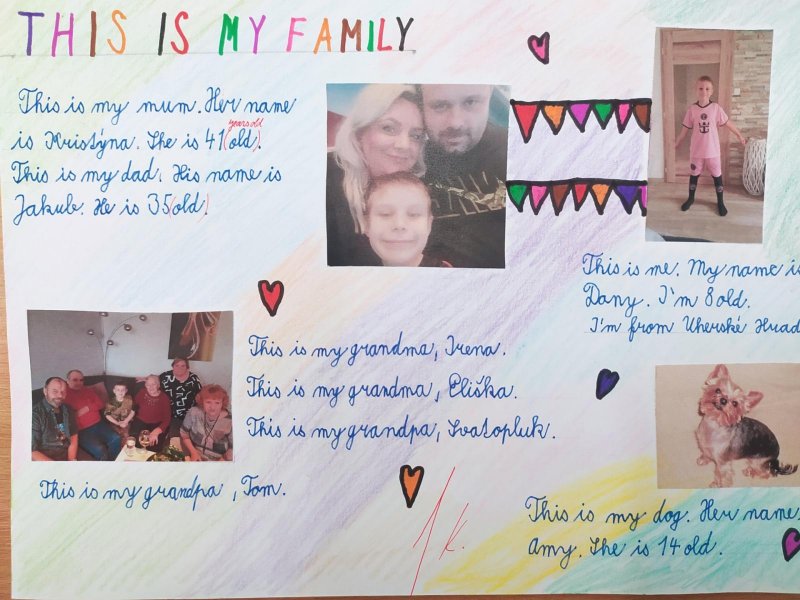 THIS IS MY FAMILY
This is my mum. Her name
is Kristýna. She is 41 (old).
years old
This is my dad. His name is
Jakub. He is 35 (old!
This is me. My name is
Dany. I'm 8 old.
I'm from Uherské Hrad
This is my grandma, Irena.
This is my grandma, Eliška.
This is my grandpa, Svatopluk.
This is my grandpa, Tom.
This is my dog. Her name
Amy. She is 14 old.
1 K.